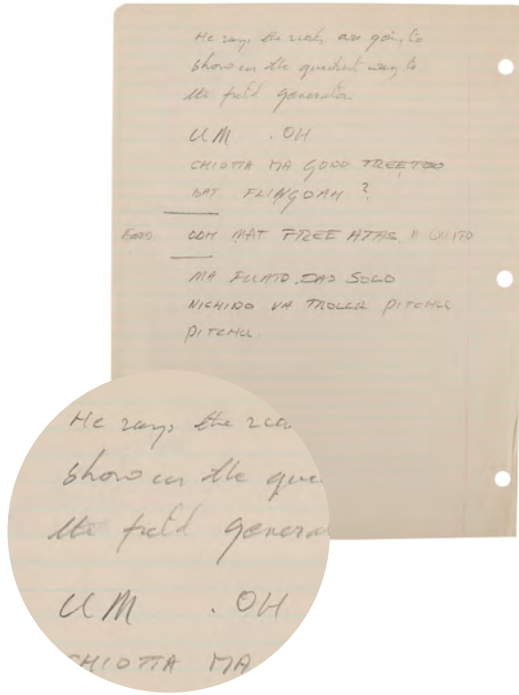 He says the scouts are going to
show us the quickest way to
the field generator
UM . OH
CHIOTTA MA GOOD TREETOO
BAT FLINGOAH ?
ODH MAT FREE ATTAS. A QUITO
MA FUATO. DAD SOLO
NICHIDO VA TROLLA PITCHU
PITCHU.
He says the
show us the
the field
UM . OH
CHIOTTA MA